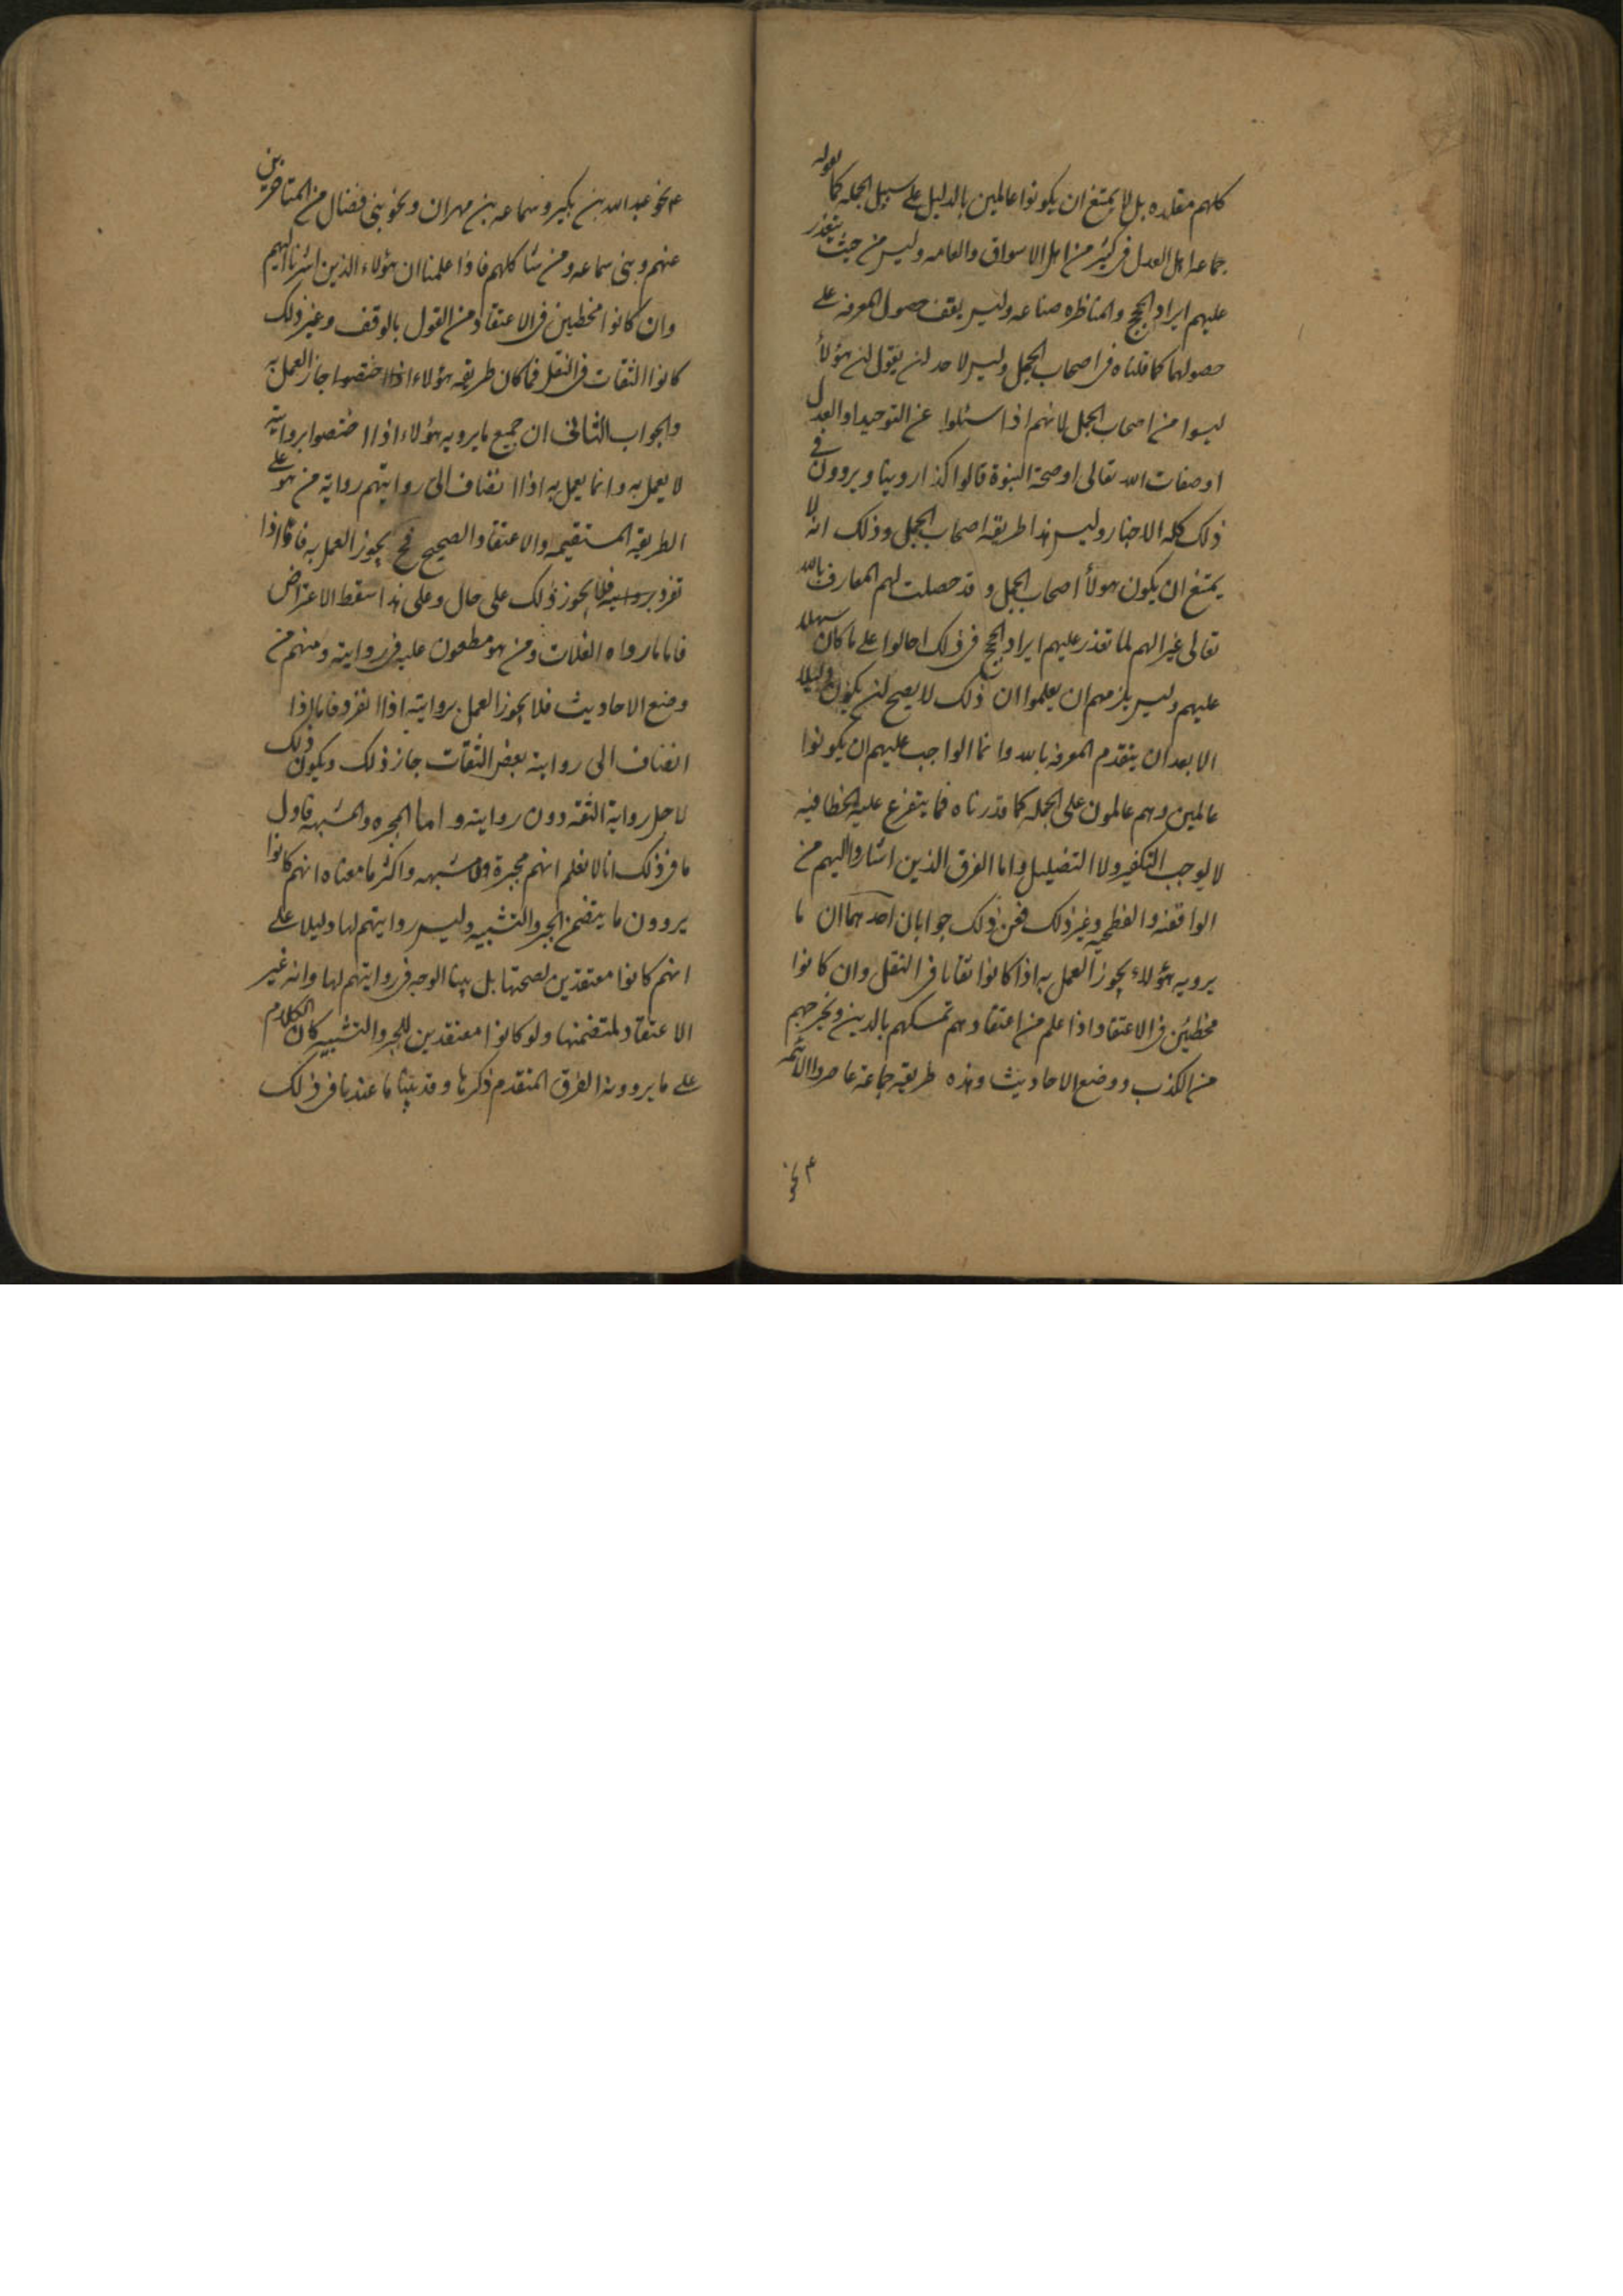 كلهم مقلده بل لا يمتنع ان يكونوا عالمين بالدليل على سبيل الجمله كما يقوله
جماعه اهل العدل فى كثير من اهل الاسواق والعامه وليس من حيث يتعذر
عليهم ايراد الحجج والمناظره صناعه وليس يقف حصول المعرفه على
حصولها كما قلناه فى اصحاب الجمل وليس لاحد ان يقول ان هؤلأ
ليسوا من اصحاب الجمل لانهم اذا سئلوا عن التوحيد او العدل
او صفات الله تعالى او صحة النبوة قالوا كذا روينا ويروون فى
ذلك كله الاخبار وليس هذا طريقة اصحاب الجمل وذلك انه لا
يمتنع ان يكون هولأ اصحاب الجمل وقد حصلت لهم المعارف بالله
تعالى غير انهم لما تعذر عليهم ايراد الحجج فى ذلك احالوا على ما كان سهلا
عليهم وليس يلزمهم ان يعلموا ان ذلك لا يصح ان يكون دليلا
الا بعد ان يتقدم المعرفه بالله وانما الواجب عليهم ان يكونوا
عالمين وهم عالمون على الجمله كما قدرناه فما يتفرع عليه الخطا فيه
لا يوجب التكفير ولا التضليل واما الفرق الذين اشاروا اليهم من
الواقفه والفطحيه وغير ذلك فعن ذلك جوابان احدهما ان ما
يرويه هؤلاء يجوز العمل به اذا كانوا ثقاتا فى النقل وان كانوا
مخطئين فى الاعتقاد اذا علم من اعتقادهم تمسكهم بالدين وتحرجهم
من الكذب ووضع الاحاديث وهذه طريقه جماعة عاصروا الائمه
ع نحو
ع نحو عبد الله بن بكير وسماعه بن مهران ونحو بنى فضال من المتاخرين
عنهم وبنى سماعه ومن شاكلهم فاذا علمنا ان هؤلاء الذين اشرنا اليهم
وان كانوا مخطئين فى الاعتقاد من القول بالوقف وغير ذلك
كانوا الثقات فى النقل فما كان طريقه هؤلاء اذا اختصوا جاز العمل به
والجواب الثانى ان جميع ما يرويه هؤلاء اذا اختصوا بروايته
لا يعمل به وانما يعمل به اذا انضاف الى روايتهم رواية من هو على
الطريقه المستقيمه والاعتقاد الصحيح فح يجوز العمل به فاما اذا
تفرد بروايته فلا يجوز ذلك على حال وعلى هذا سقط الاعتراض
فاما ما رواه الغلات ومن هو مطعون عليه فى روايته ومنهم من
وضع الاحاديث فلا يجوز العمل بروايته اذا انفرد فاما اذا
انضاف الى رواية بعض الثقات جاز ذلك ويكون ذلك
لاجل رواية الثقه دون روايته واما المجبره والمشبهه فاول
ما فى ذلك انا لا نعلم انهم مجبرة ولا مشبهه واكثر ما معناه انهم كانوا
يروون ما يتضمن الجبر والتشبيه وليس روايتهم لها دليلا على
انهم كانوا معتقدين لصحتها بل بينا الوجه فى روايتهم لها وانه غير
الاعتقاد لمتضمنها ولو كانوا معتقدين للجبر والتشبيه كان الكلام
على ما يروونه الفرق المتقدم ذكرها وقد بينا ما عندنا فى ذلك